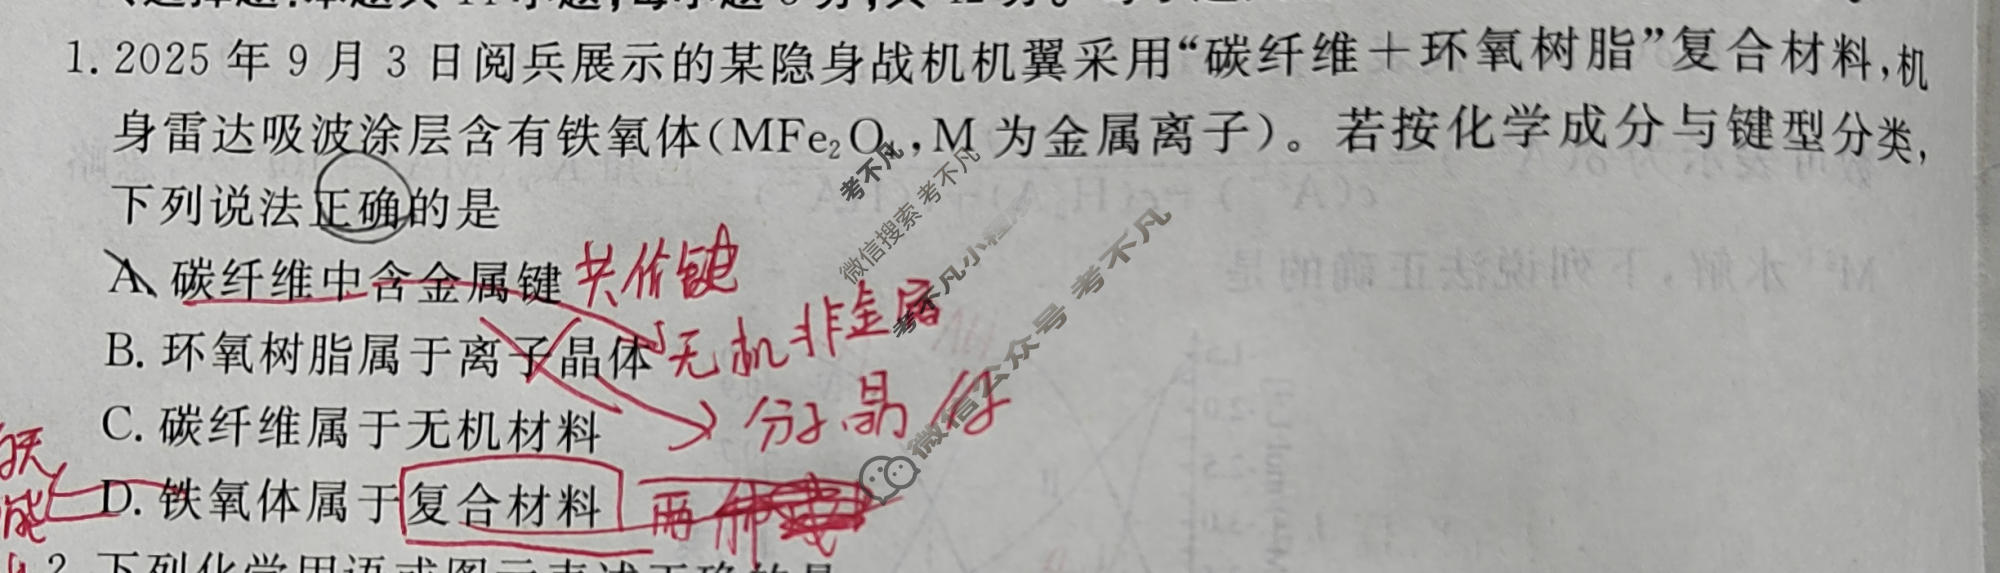 1. 2025 年 9 月 3 日阅兵展示的某隐身战机机翼采用“碳纤维＋环氧树脂”复合材料,机
身雷达吸波涂层含有铁氧体(MFe₂O₄,M 为金属离子)。若按化学成分与键型分类,
下列说法正确的是
A. 碳纤维中含金属键 共价键
B. 环氧树脂属于离子晶体 无机非金属
C. 碳纤维属于无机材料 分子晶体
D. 铁氧体属于复合材料 两种
考不凡
微信搜索 考不凡
考不凡小程序
微信公众号 考不凡